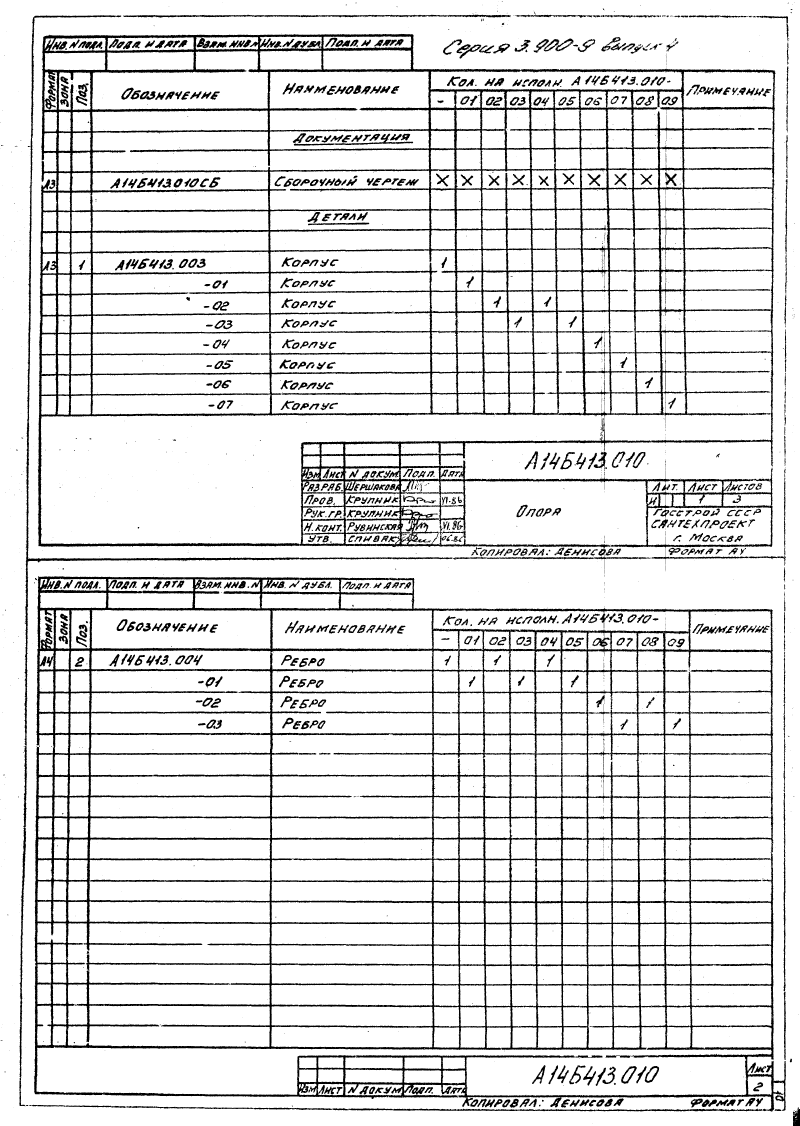 Инв. N подл. Подп. и дата Взам. инв. N Инв. N дубл. Подп. и дата
Серия 3.900-9 выпуск 4
Формат Зона Поз. Обозначение Наименование Кол. на исполн. А14Б413.010- Примечание
- 01 02 03 04 05 06 07 08 09
Документация
А3 А14Б413.010СБ Сборочный чертеж X X X X X X X X X X
Детали
А3 1 А14Б413.003 Корпус 1
-01 Корпус 1
-02 Корпус 1 1
-03 Корпус 1 1
-04 Корпус 1
-05 Корпус 1
-06 Корпус 1
-07 Корпус 1
А14Б413.010
Изм Лист N докум. Подп. Дата
Разраб. Шершакова
Пров. Крупник VI-86
Рук. гр. Крупник
Н. конт. Рувинская VI.86
Утв. Спивак 06.86
Опора
Лит. Лист Листов
И 1 3
Госстрой СССР
Сантехпроект
г. Москва
Копировал: Денисова Формат А4
Инв. N подл. Подп. и дата Взам. инв. N Инв. N дубл. Подп. и дата
Формат Зона Поз. Обозначение Наименование Кол. на исполн. А14Б413.010- Примечание
- 01 02 03 04 05 06 07 08 09
А4 2 А14Б413.004 Ребро 1 1 1
-01 Ребро 1 1 1
-02 Ребро 1 1
-03 Ребро 1 1
А14Б413.010
Лист
2
Изм Лист N докум Подп. Дата
Копировал: Денисова Формат А4